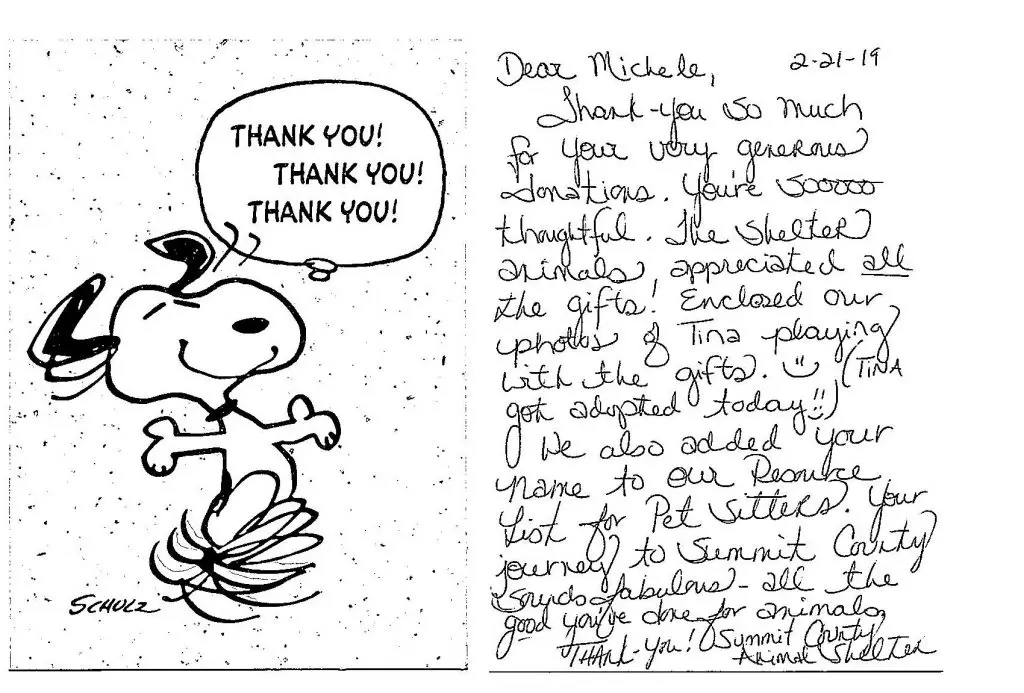 THANK YOU!
THANK YOU!
THANK YOU!
SCHULZ
Dear Michele, 2-21-19
Thank-you so much
for your very generous
donations. You're sooooo
thoughtful. The Shelter
animals appreciated all
the gifts! Enclosed our
photos of Tina playing
with the gifts. (TINA
got adopted today!!)
We also added your
name to our Resource
List for Pet Sitters. Your
journey to Summit County
sounds fabulous - all the
good you've done for animals.
THANK-You! Summit County
Animal Shelter